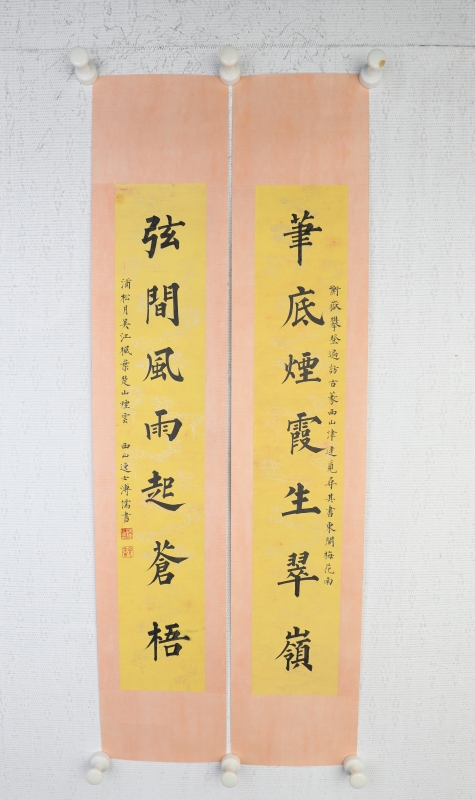 筆底煙霞生翠嶺
衡嶽攀登遍訪古篆西山津逮覓尋其書東閣梅花南
弦間風雨起蒼梧
浦松月吳江楓葉楚山煙雲 西山逸士溥儒書